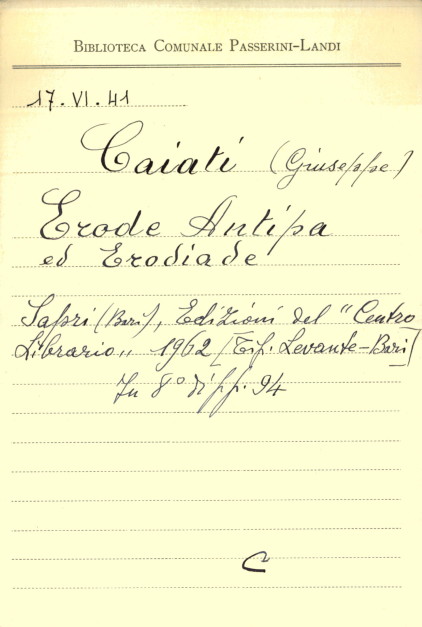 BIBLIOTECA COMUNALE PASSERINI-LANDI
17. VI. 41
Caiati (Giuseppe)
Erode Antipa
ed Erodiade
Sapri (Bari), Edizioni del "Centro
Librario„ 1962 [Tif. Levante-Bari]
In 8° di pp. 94
C